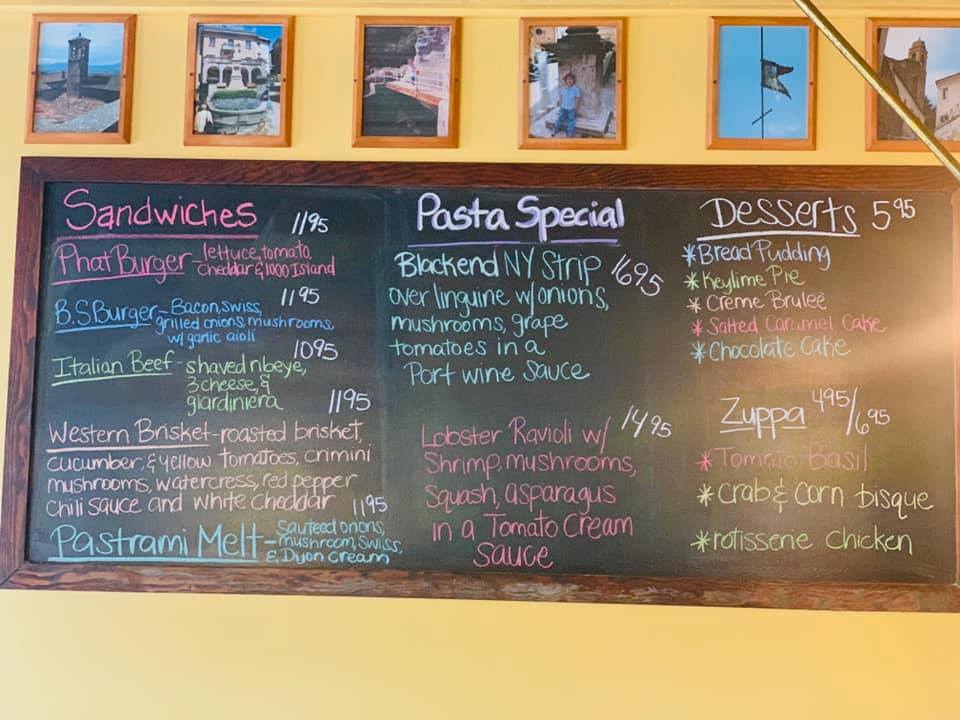 Sandwiches 1195
Phat Burger - lettuce, tomato,
cheddar & 1000 Island
1195
B.S. Burger - Bacon, swiss,
grilled onions, mushrooms,
w/ garlic aioli
1095
Italian Beef - shaved ribeye,
3 cheese, &
giardiniera
1195
Western Brisket - roasted brisket,
cucumber, & yellow tomatoes, crimini
mushrooms, watercress, red pepper
chili sauce and white cheddar
1195
Pastrami Melt - Sauteed onions,
mushroom, Swiss,
& Dijon Cream
Pasta Special
Blackend NY Strip 1695
over linguine w/ onions,
mushrooms, grape
tomatoes in a
Port wine sauce
Lobster Ravioli w/ 1495
Shrimp, mushrooms,
Squash, asparagus
in a Tomato Cream
Sauce
Desserts 595
* Bread Pudding
* Keylime Pie
* Creme Brulee
* Salted Caramel Cake
* Chocolate Cake
Zuppa 495/695
* Tomato Basil
* Crab & Corn bisque
* rotisserie chicken